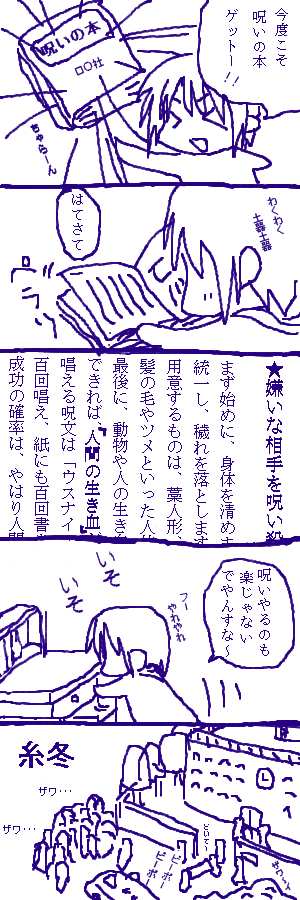 今度こそ
呪いの本
ゲットー!!
呪いの本
ロ〇社
ちゃらーん
わくわく
はてさて
★嫌いな相手を呪い殺
まず始めに、身体を清めま
統一し、穢れを落とします
用意するものは、藁人形、
髪の毛やツメといった人体
最後に、動物や人の生き
できれば『人間の生き血』
唱える呪文は「ウスナイ
百回唱え、紙にも百回書き
成功の確率は、やはり人間
呪いやるのも
楽じゃない
でやんすな〜
フー
やれやれ
いそ
いそ
糸冬
ザワ…
ザワ…
どいて〜
ピーポー
ピーポー